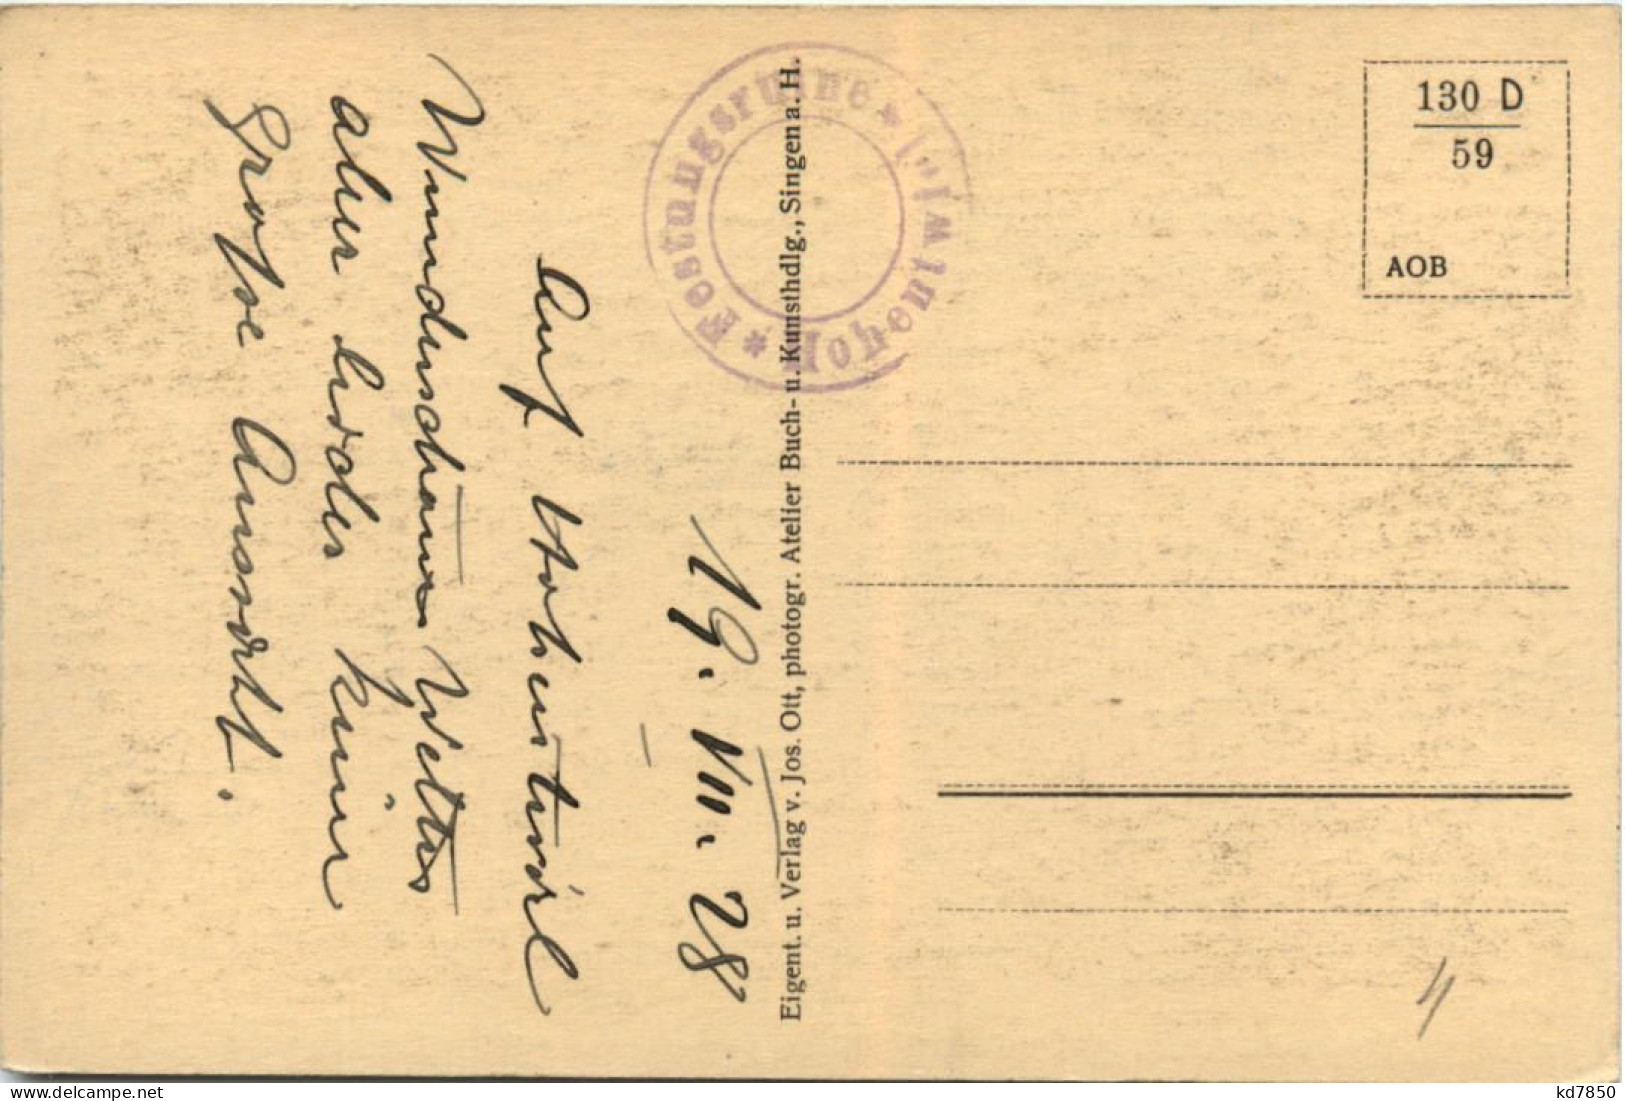 19. VIII. 28
Auf Hohentwiel
Wunderschönes Wetter
aber leider keine
Grosse Aussicht.
* Festungsruine * Hohentwiel
Eigent. u. Verlag v. Jos. Ott, photogr. Atelier Buch- u. Kunsthdlg., Singen a. H.
130 D
59
AOB
kd7850